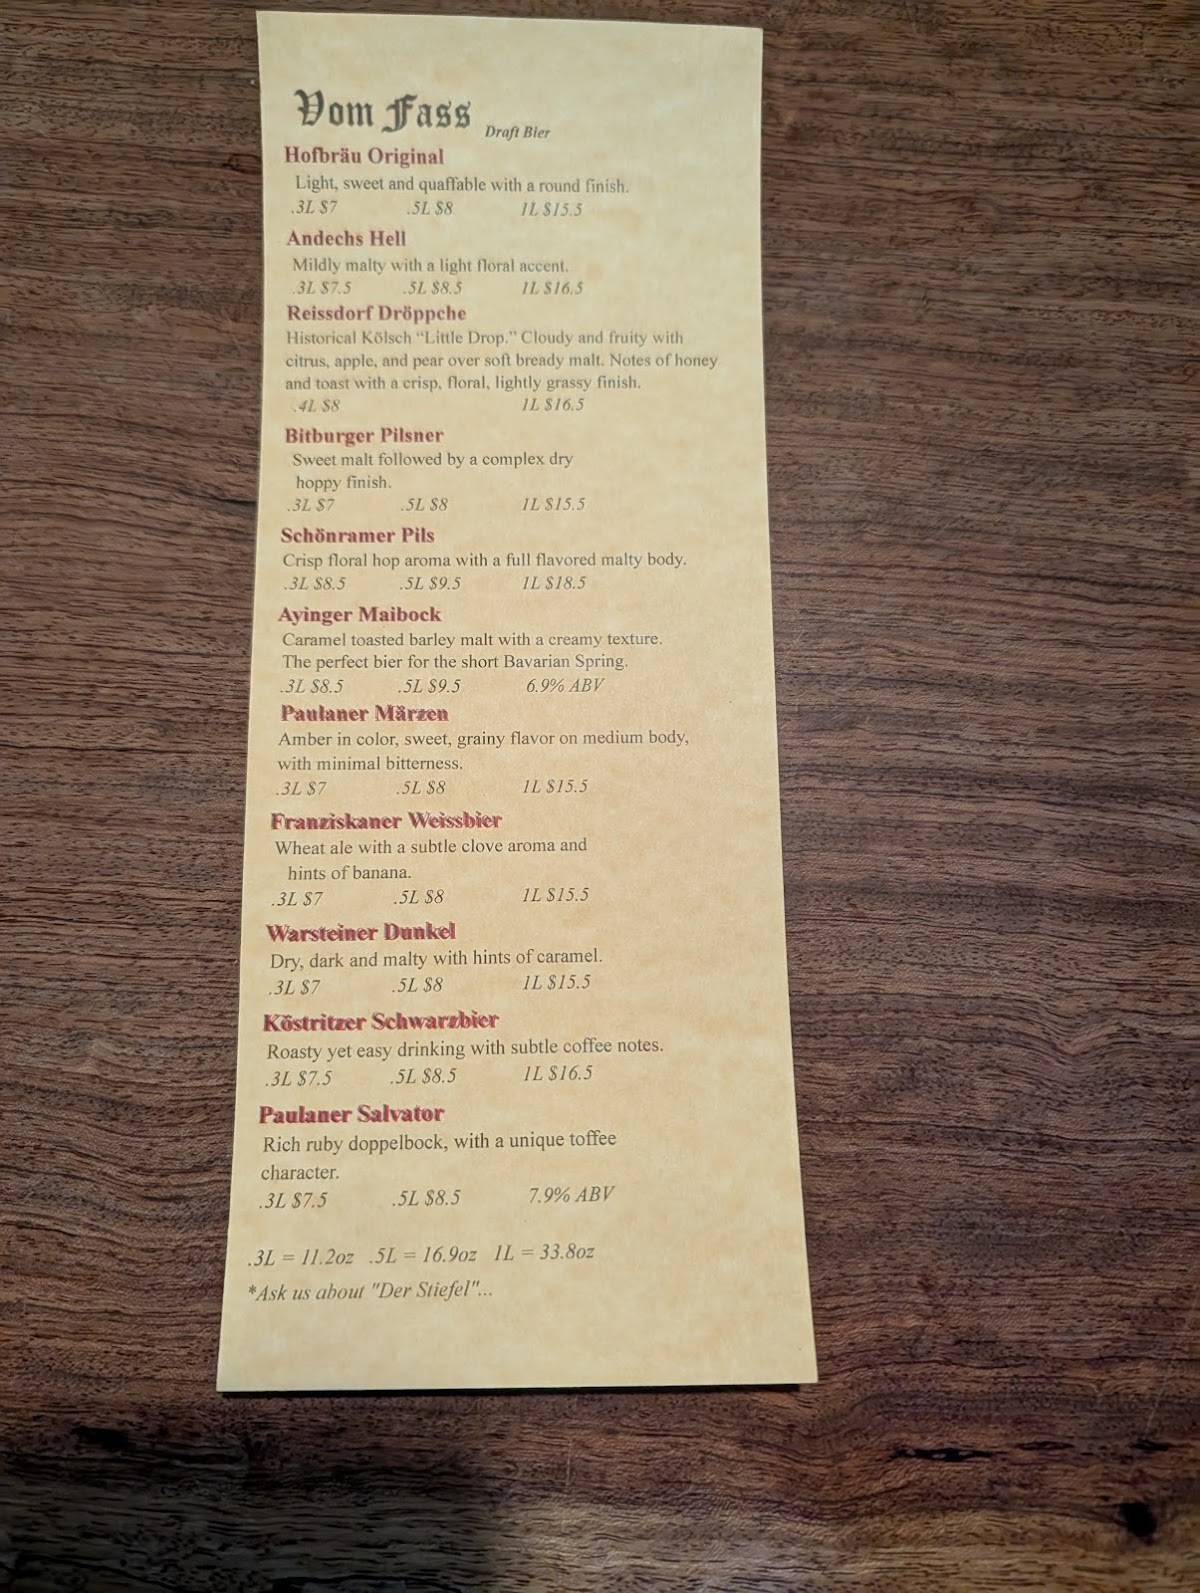 Vom Fass Draft Bier
Hofbräu Original
Light, sweet and quaffable with a round finish.
.3L $7 .5L $8 1L $15.5
Andechs Hell
Mildly malty with a light floral accent.
.3L $7.5 .5L $8.5 1L $16.5
Reissdorf Dröppche
Historical Kölsch "Little Drop." Cloudy and fruity with
citrus, apple, and pear over soft bready malt. Notes of honey
and toast with a crisp, floral, lightly grassy finish.
.4L $8 1L $16.5
Bitburger Pilsner
Sweet malt followed by a complex dry
hoppy finish.
.3L $7 .5L $8 1L $15.5
Schönramer Pils
Crisp floral hop aroma with a full flavored malty body.
.3L $8.5 .5L $9.5 1L $18.5
Ayinger Maibock
Caramel toasted barley malt with a creamy texture.
The perfect bier for the short Bavarian Spring.
.3L $8.5 .5L $9.5 6.9% ABV
Paulaner Märzen
Amber in color, sweet, grainy flavor on medium body,
with minimal bitterness.
.3L $7 .5L $8 1L $15.5
Franziskaner Weissbier
Wheat ale with a subtle clove aroma and
hints of banana.
.3L $7 .5L $8 1L $15.5
Warsteiner Dunkel
Dry, dark and malty with hints of caramel.
.3L $7 .5L $8 1L $15.5
Köstritzer Schwarzbier
Roasty yet easy drinking with subtle coffee notes.
.3L $7.5 .5L $8.5 1L $16.5
Paulaner Salvator
Rich ruby doppelbock, with a unique toffee
character.
.3L $7.5 .5L $8.5 7.9% ABV
.3L = 11.2oz .5L = 16.9oz 1L = 33.8oz
*Ask us about "Der Stiefel"...